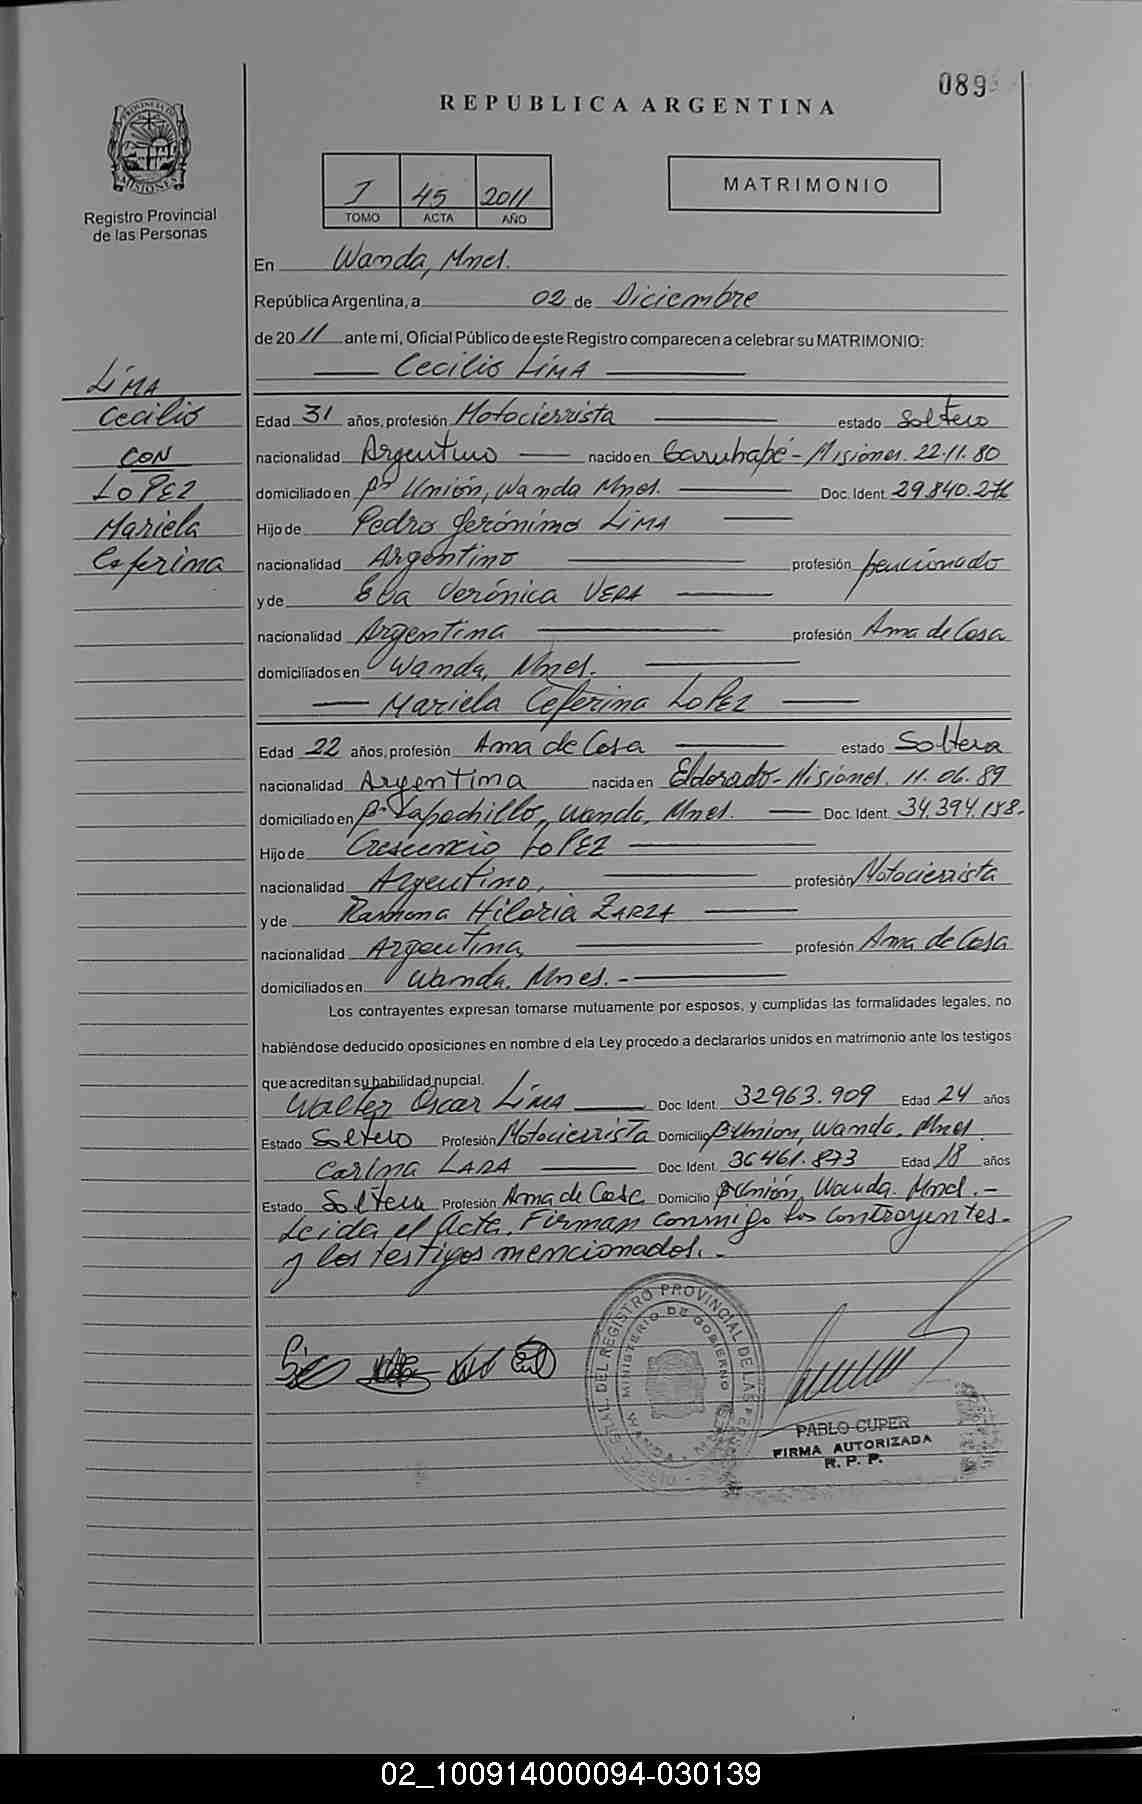 089
REPUBLICA ARGENTINA
PROVINCIA DE
MISIONES
Registro Provincial
de las Personas
I 45 2011
TOMO ACTA AÑO
MATRIMONIO
En Wanda, Mnes.
República Argentina, a 02 de Diciembre
de 2011 ante mi, Oficial Público de este Registro comparecen a celebrar su MATRIMONIO:
Cecilio LIMA
LIMA
Cecilio
CON
LOPEZ
Mariela
Ceferina
Edad 31 años, profesión Motocierrista estado Soltero
nacionalidad Argentino nacido en Garuhapé - Misiones. 22.11.80
domiciliado en Bº Unión, Wanda Mnes. Doc. Ident. 29.840.276
Hijo de Pedro Jerónimo LIMA
nacionalidad Argentino profesión pencionado
y de Eva Verónica VERA
nacionalidad Argentina profesión Ama de Casa
domiciliados en Wanda, Mnes.
Mariela Ceferina LOPEZ
Edad 22 años, profesión Ama de Casa estado Soltera
nacionalidad Argentina nacida en Eldorado - Misiones. 11.06.89
domiciliado en Bº Lapachillo, Wanda, Mnes. Doc. Ident. 34.394.188.
Hijo de Crescencio LOPEZ
nacionalidad Argentino, profesión Motocierrista
y de Ramona Hilaria ZARZA
nacionalidad Argentina, profesión Ama de Casa
domiciliados en Wanda. Mnes. -
Los contrayentes expresan tomarse mutuamente por esposos, y cumplidas las formalidades legales, no
habiéndose deducido oposiciones en nombre d ela Ley procedo a declararlos unidos en matrimonio ante los testigos
que acreditan su habilidad nupcial.
Walter Oscar LIMA Doc. Ident. 32963.909 Edad 24 años
Estado Soltero Profesión Motocierrista Domicilio Bº Union, Wanda. Mnes.
Carina LARA Doc. Ident. 36461.873 Edad 18 años
Estado Soltera Profesión Ama de Casa Domicilio Bº Unión, Wanda. Mnes. -
Leida el Acta. Firman conmigo los contrayentes
y los testigos mencionados. -
DEL REGISTRO PROVINCIAL DE LAS PER
MINISTERIO DE GOBIERNO
PABLO CUPER
FIRMA AUTORIZADA
R. P. P.
02_100914000094-030139